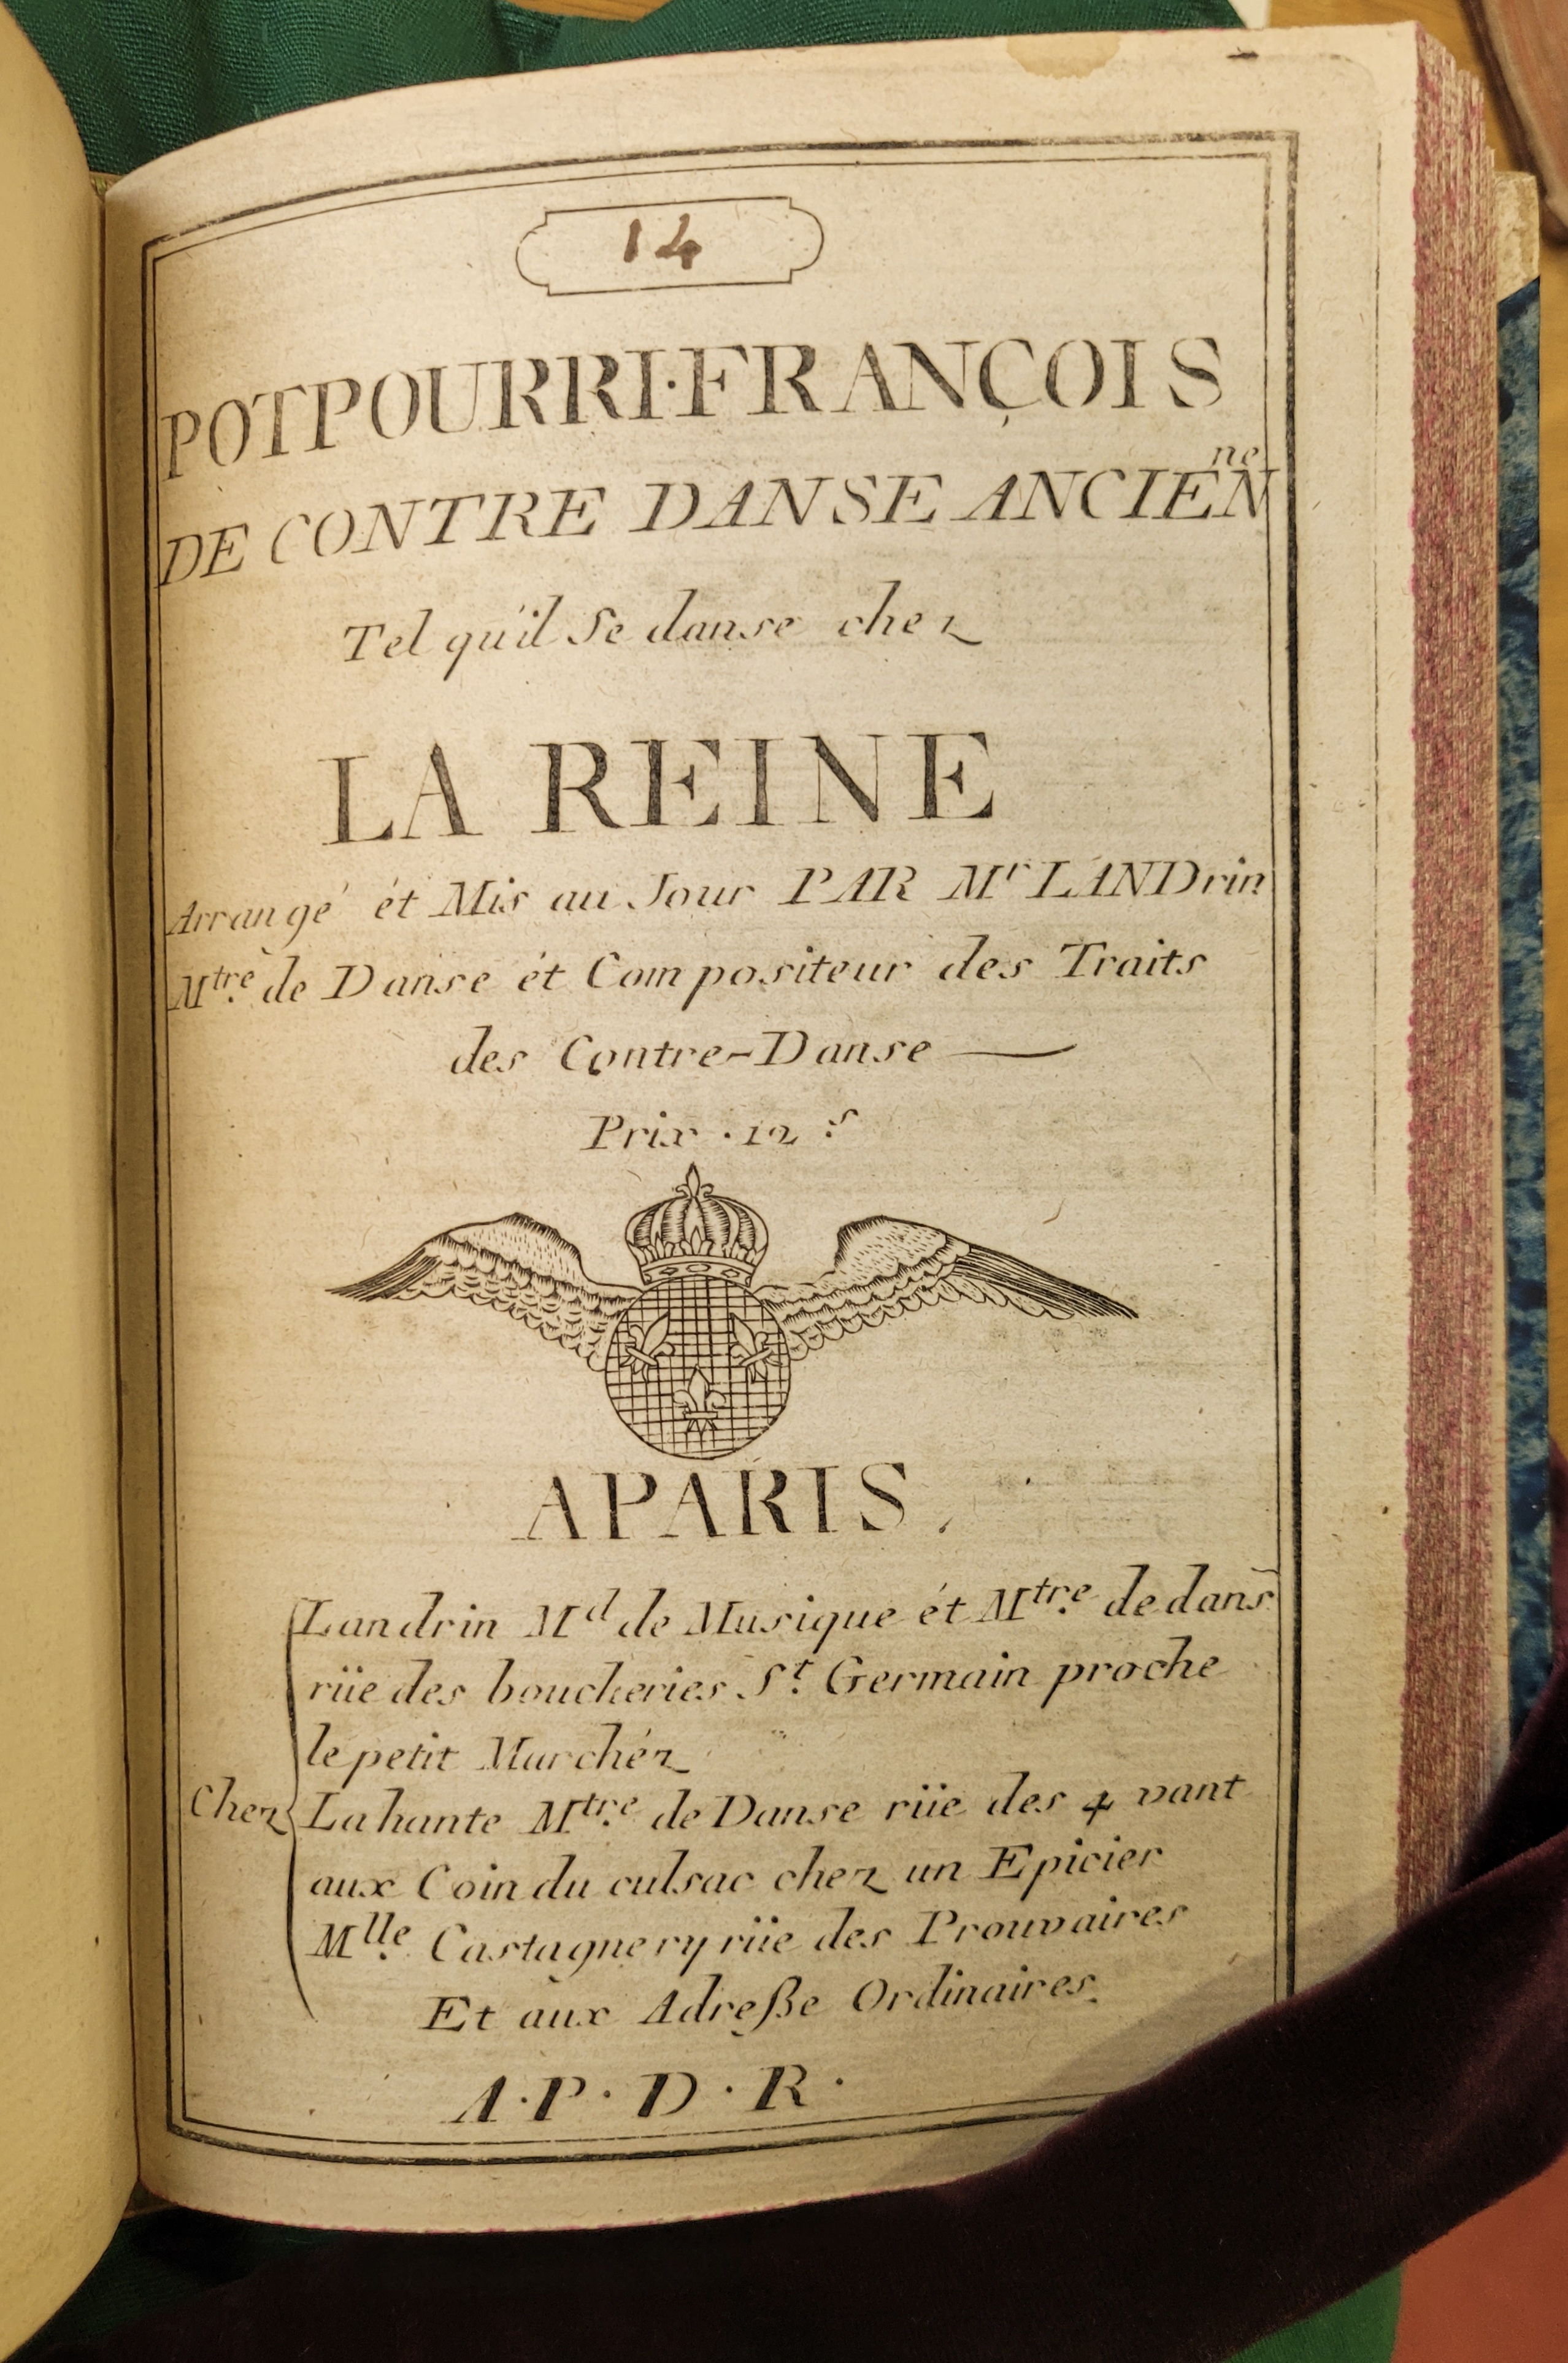 14
POTPOURRI·FRANÇOIS
DE CONTRE DANSE ANCIENne
Tel qu'il Se danse chez
LA REINE
Arrangé ét Mis au Jour PAR Mr LANDrin
Mtre. de Danse ét Compositeur des Traits
des Contre-Danse —
Prix · 12 s
APARIS.
Landrin Md de Musique ét Mtre. de dans
rüe des boucheries St. Germain proche
le petit Marchéz
Chez
Lahante Mtre. de Danse rüe des 4 vant
aux Coin du culsac chez un Epicier
Mlle. Castagnery rüe des Prouvaires
Et aux Adreße Ordinaires.
A·P·D·R·